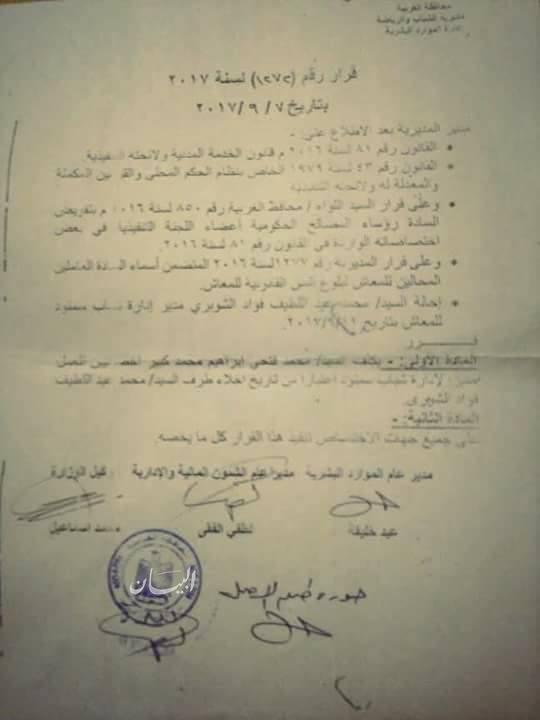 محافظة الغربية
مديرية الشباب والرياضة
إدارة الموارد البشرية
قرار رقم (١٢٧٢) لسنة ٢٠١٧
بتاريخ ٧ / ٩ / ٢٠١٧
مدير المديرية بعد الاطلاع على :-
القانون رقم ٨١ لسنة ٢٠١٦ م قانون الخدمة المدنية ولائحته التنفيذية
القانون رقم ٤٣ لسنة ١٩٧٩ الخاص بنظام الحكم المحلى والقوانين المكملة
والمعدلة له ولائحته التنفيذية
وعلى قرار السيد اللواء / محافظ الغربية رقم ٨٥٠ لسنة ٢٠١٦ م بتفويض
السادة رؤساء المصالح الحكومية أعضاء اللجنة التنفيذية في بعض
اختصاصاته الواردة في القانون رقم ٨١ لسنة ٢٠١٦.
وعلى قرار المديرية رقم ١٢٧٧ لسنة ٢٠١٦ المتضمن أسماء السادة العاملين
المحالين للمعاش لبلوغ السن القانونية للمعاش.
إحالة السيد/ محمد عبد اللطيف فؤاد الشوبري مدير إدارة شباب سمنود
للمعاش بتاريخ ٢٠١٧/٩/١١.
قـــــرر
المادة الأولى:- يكلف السيد/ محمد فتحي ابراهيم محمد كبير اخصائيين للعمل
مدير لإدارة شباب سمنود اعتبارا من تاريخ اخلاء طرف السيد/ محمد عبد اللطيف
فؤاد الشوبري.
المادة الثانية:-
على جميع جهات الاختصاص تنفيذ هذا القرار كل ما يخصه.
مدير عام الموارد البشرية مدير عام الشئون المالية والإدارية وكيل الوزارة
عيد خليفة لطفي الفقى محمد اسماعيل
البيان
صورة طبق الاصل